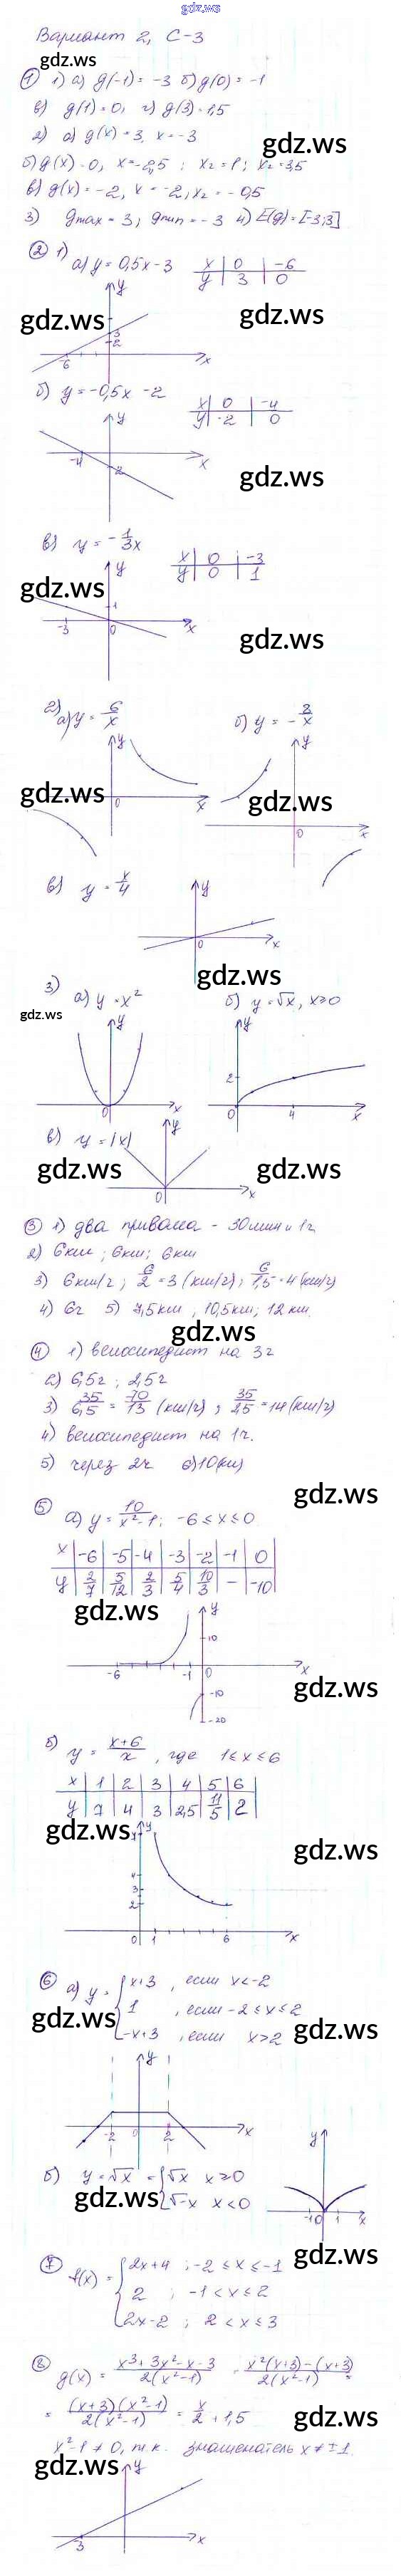 gdz.ws
Вариант 2, С-3
gdz.ws
① 1) а) g(-1) = -3 б) g(0) = -1
в) g(1) = 0, г) g(3) = 1,5
2) а) g(x) = 3, x = -3
gdz.ws
б) g(x) = 0, x = -2,5 ; x₂ = 1 ; x₂ = 3,5
в) g(x) = -2, x = -2, x₂ = -0,5
3) gmax = 3 ; gmin = -3 4) E(g) = [-3;3]
② 1)
а) y = 0,5x - 3
x 0 -6
y 3 0
y
gdz.ws
gdz.ws
3
2
-6
x
б) y = -0,5x - 2
x 0 -4
y -2 0
y
-4
x
-2
gdz.ws
в) y = -1/3x
x 0 -3
y 0 1
gdz.ws
y
1
-3
0
x
gdz.ws
2)
а) y = 6/x
б) y = -8/x
y
y
gdz.ws
gdz.ws
0
x
0
x
в) y = x/4
y
0
x
gdz.ws
3)
а) y = x²
б) y = √x, x ≥ 0
gdz.ws
y
y
2
0
x
0
4
x
в) y = |x|
y
gdz.ws
gdz.ws
0
x
③ 1) два привала - 30 мин и 1 ч
2) 6 км ; 6 км ; 6 км
3) 6 км/ч ; 6/2 = 3 (км/ч) ; 6/1,5 = 4 (км/ч)
4) 6 ч 5) 7,5 км , 10,5 км ; 12 км.
gdz.ws
④ 1) велосипедист на 3 ч
2) 6,5 ч ; 2,5 ч
3) 35/6,5 = 70/13 (км/ч) ; 35/2,5 = 14 (км/ч)
4) велосипедист на 1 ч.
5) через 2 ч 6) 10 (км)
gdz.ws
⑤ а) y = 10/x²-1 ; -6 ≤ x ≤ 0
x -6 -5 -4 -3 -2 -1 0
y 2/7 5/12 2/3 5/4 10/3 - -10
gdz.ws
y
10
-6
-1
0
x
gdz.ws
-10
-20
б) y = x+6/x , где 1 ≤ x ≤ 6
x 1 2 3 4 5 6
y 7 4 3 2,5 11/5 2
gdz.ws
y
gdz.ws
4
3
2
0
1
6
x
⑥ а) y = { x+3 , если x < -2
1 , если -2 ≤ x ≤ 2
-x+3 , если x > 2
gdz.ws
gdz.ws
y
-2
0
2
x
б) y = √x = { √x x ≥ 0
√-x x < 0
gdz.ws
y
-1
0
1
x
gdz.ws
⑦ f(x) = { 2x+4 ; -2 ≤ x ≤ -1
2 ; -1 < x ≤ 2
2x-2 ; 2 < x ≤ 3
⑧ g(x) = x³+3x²-x-3/2(x²-1) = x²(x+3)-(x+3)/2(x²-1) =
= (x+3)(x²-1)/2(x²-1) = x/2 + 1,5
gdz.ws
x²-1 ≠ 0, т.к. знаменатель x ≠ ±1
gdz.ws
y
-3
x